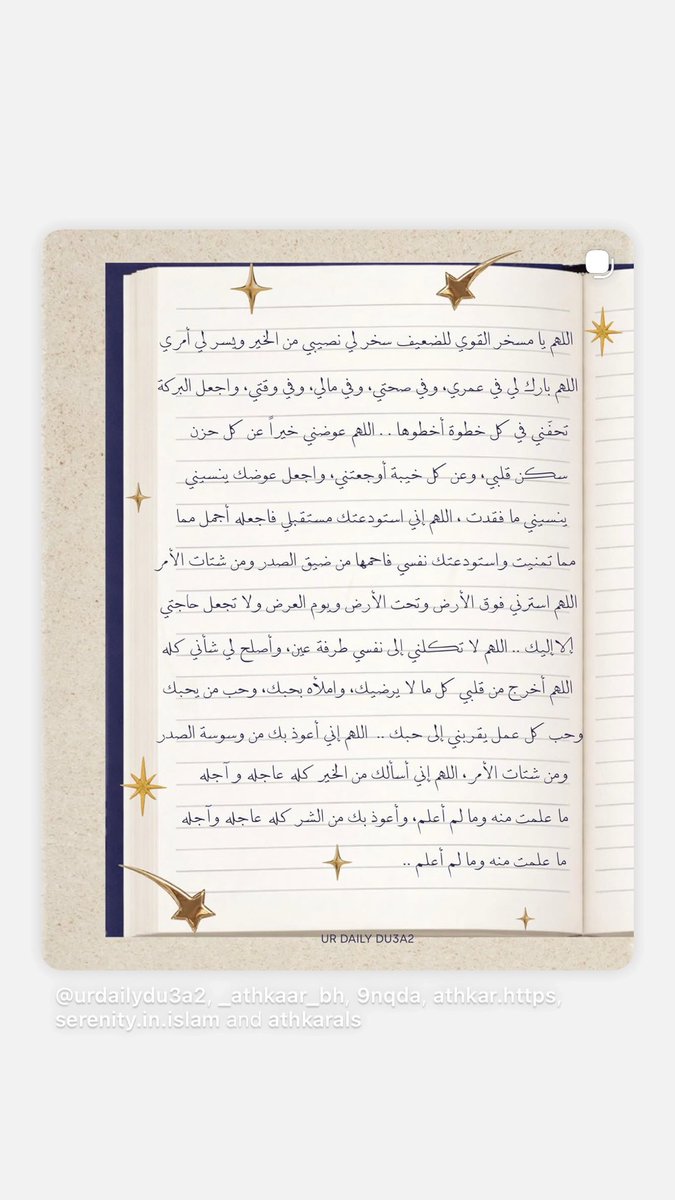 اللهم يا مسخر القوي للضعيف سخر لي نصيبي من الخير ويسر لي أمري
اللهم بارك لي في عمري، وفي صحتي، وفي مالي، وفي وقتي، واجعل البركة
تحفّني في كل خطوة أخطوها .. اللهم عوضني خيراً عن كل حزن
سكن قلبي، وعن كل خيبة أوجعتني، واجعل عوضك ينسيني
ينسيني ما فقدت ، اللهم إني استودعتك مستقبلي فاجعله أجمل مما
مما تمنيت واستودعتك نفسي فاحمها من ضيق الصدر ومن شتات الأمر
اللهم استرني فوق الأرض وتحت الأرض ويوم العرض ولا تجعل حاجتي
إلا إليك .. اللهم لا تكلني إلى نفسي طرفة عين، وأصلح لي شأني كله
اللهم أخرج من قلبي كل ما لا يرضيك، واملأه بحبك، وحب من يحبك
وحب كل عمل يقربني إلى حبك .. اللهم إني أعوذ بك من وسوسة الصدر
ومن شتات الأمر ، اللهم إني أسألك من الخير كله عاجله و آجله
ما علمت منه وما لم أعلم، وأعوذ بك من الشر كله عاجله وآجله
ما علمت منه وما لم أعلم ..
UR DAILY DU3A2
@urdailydu3a2, _athkaar_bh, 9nqda, athkar.https,
serenity.in.islam and athkarals